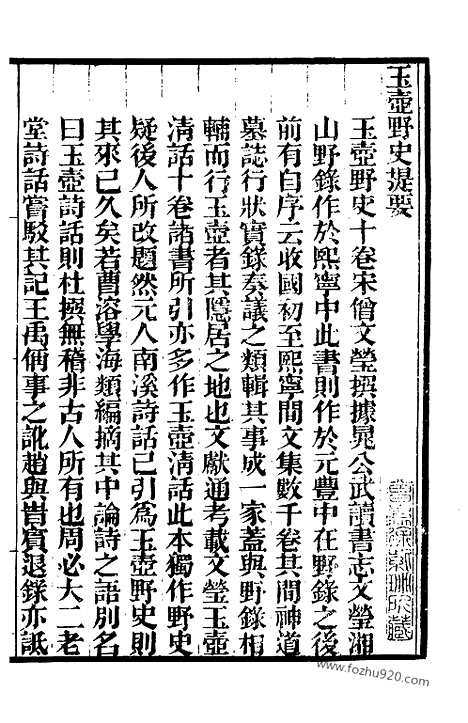 玉壺野史提要
玉壺野史十卷宋僧文瑩撰據晁公武讀書志文瑩湘
山野錄作於熙寧中此書則作於元豐中在野錄之後
前有自序云收國初至熙寧間文集數千卷其間神道
墓誌行狀實錄奏議之類輯其事成一家蓋與野錄相
輔而行玉壺者其隱居之地也文獻通考載文瑩玉壺
清話十卷諸書所引亦多作玉壺清話此本獨作野史
疑後人所改題然元人南溪詩話已引為玉壺野史則
其來已久矣若曹溶學海類編摘其中論詩之語別名
曰玉壺詩話則杜撰無稽非古人所有也周必大二老
堂詩話嘗駁其記王禹偁事之訛趙與旹賓退錄亦詆
www.fozhu920.com